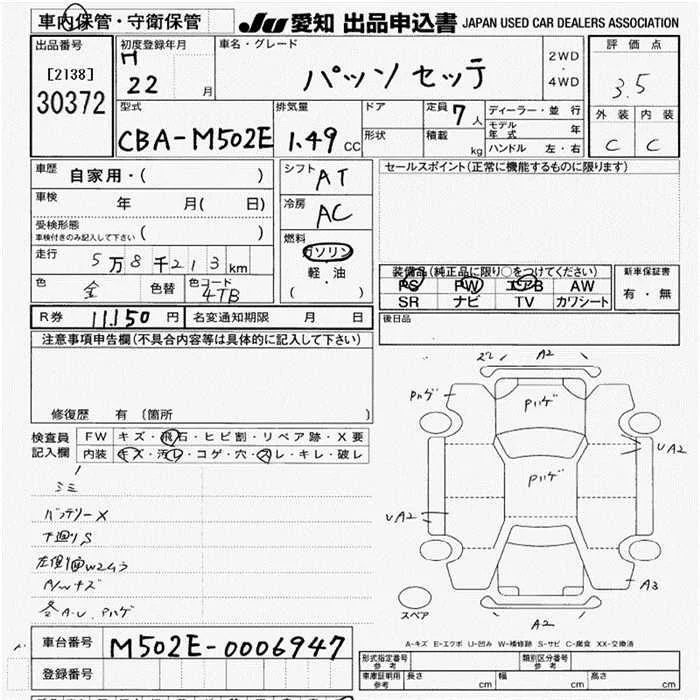 車内保管・守衛保管
JU 愛知 出品申込書 JAPAN USED CAR DEALERS ASSOCIATION
出品番号 初度登録年月 車名・グレード 2WD・4WD 評価点
[2138]
30372
H
22 月
パッソ セッテ
3.5
型式 排気量 ドア 定員 7人 ディーラー・並行 外装 内装
CBA-M502E 1.49 CC
形状 積載 kg
モデル年式 年
ハンドル 左・右
C C
車歴 自家用・( )
シフト AT
セールスポイント(正常に機能するものに限ります)
車検 年 月( 日)
冷房 AC
受検形態
車検付きのみ記入して下さい ( )
燃料
ガソリン
軽・油
( )
走行 5万8千213km
色 金 色替 色コード 4TB
装備品(純正品に限り○をつけてください) 新車保証書
PS PW エアB AW
SR ナビ TV カワシート
有・無
R券 11,150円 名変通知期限 月 日
後日品
注意事項申告欄(不具合内容等は具体的に記入して下さい)
修復歴 有 〔箇所 〕
検査員記入欄
FW キズ・飛石・ヒビ割・リペア跡・X要
内装 キズ・汚レ・コゲ・穴・スレ・キレ・破レ
シミ
バッテリーX
下廻りS
各A・U、Pハゲ
A2
Pハゲ
Pハゲ
Pハゲ
UA2
UA2
A3
A2
スペア
A-キズ E-エクボ U-凹み W-補修跡 S-サビ C-腐食 XX-交換済
車台番号 M502E-0006947
登録番号
形式指定番号 参考 類別区分番号 参考
車庫証明用 参考 長さ cm 幅 cm 高さ cm